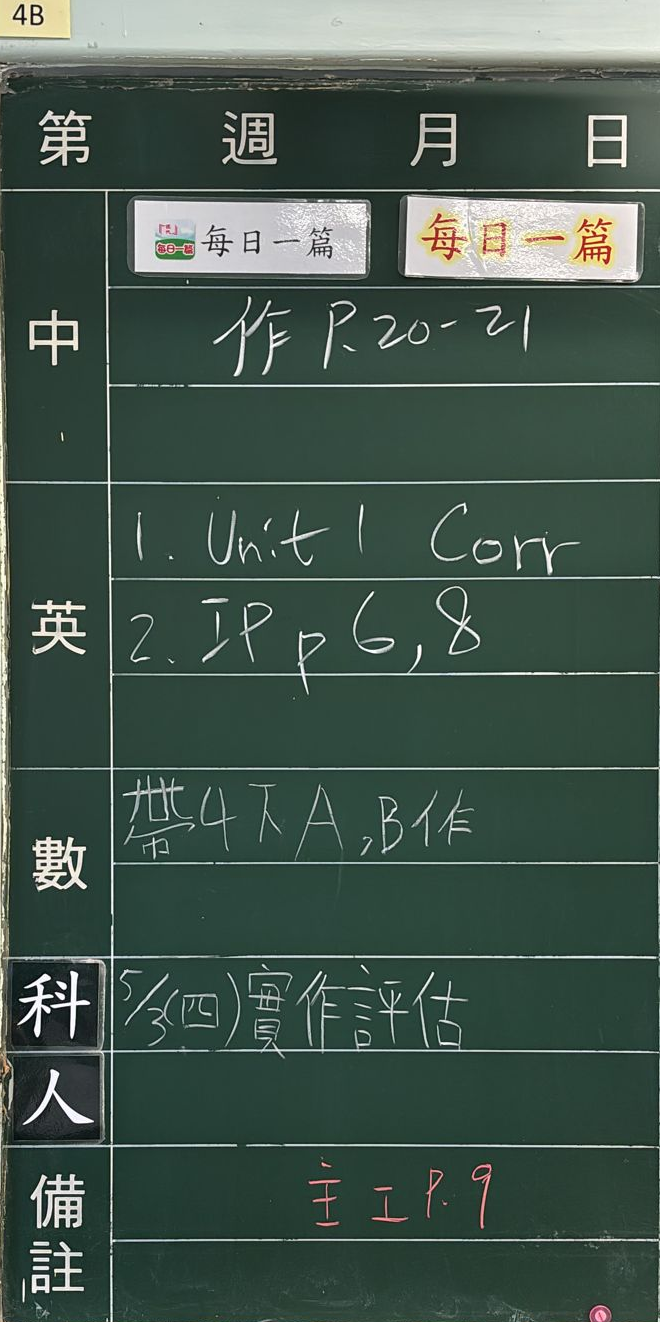 4B
第 週 月 日
每日一篇 每日一篇
中
作 P.20-21
英
1. Unit 1 Corr
2. IP p 6,8
數
帶4下A,B作
科
5/3(四)實作評估
人
備註
主工P.9